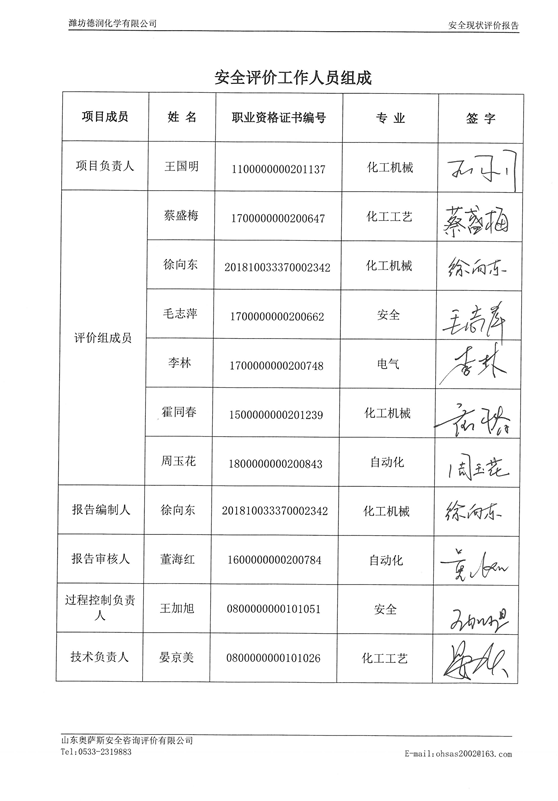 潍坊德润化学有限公司 安全现状评价报告
安全评价工作人员组成
项目成员 姓 名 职业资格证书编号 专 业 签 字
项目负责人 王国明 1100000000201137 化工机械
评价组成员 蔡盛梅 1700000000200647 化工工艺 蔡盛梅
徐向东 201810033370002342 化工机械 徐向东
毛志萍 1700000000200662 安全
李林 1700000000200748 电气 李林
霍同春 1500000000201239 化工机械
周玉花 1800000000200843 自动化 周玉花
报告编制人 徐向东 201810033370002342 化工机械 徐向东
报告审核人 董海红 1600000000200784 自动化
过程控制负责
人 王加旭 0800000000101051 安全
技术负责人 晏京美 0800000000101026 化工工艺
山东奥萨斯安全咨询评价有限公司
Tel:0533-2319883 E-mail:ohsas2002@163.com